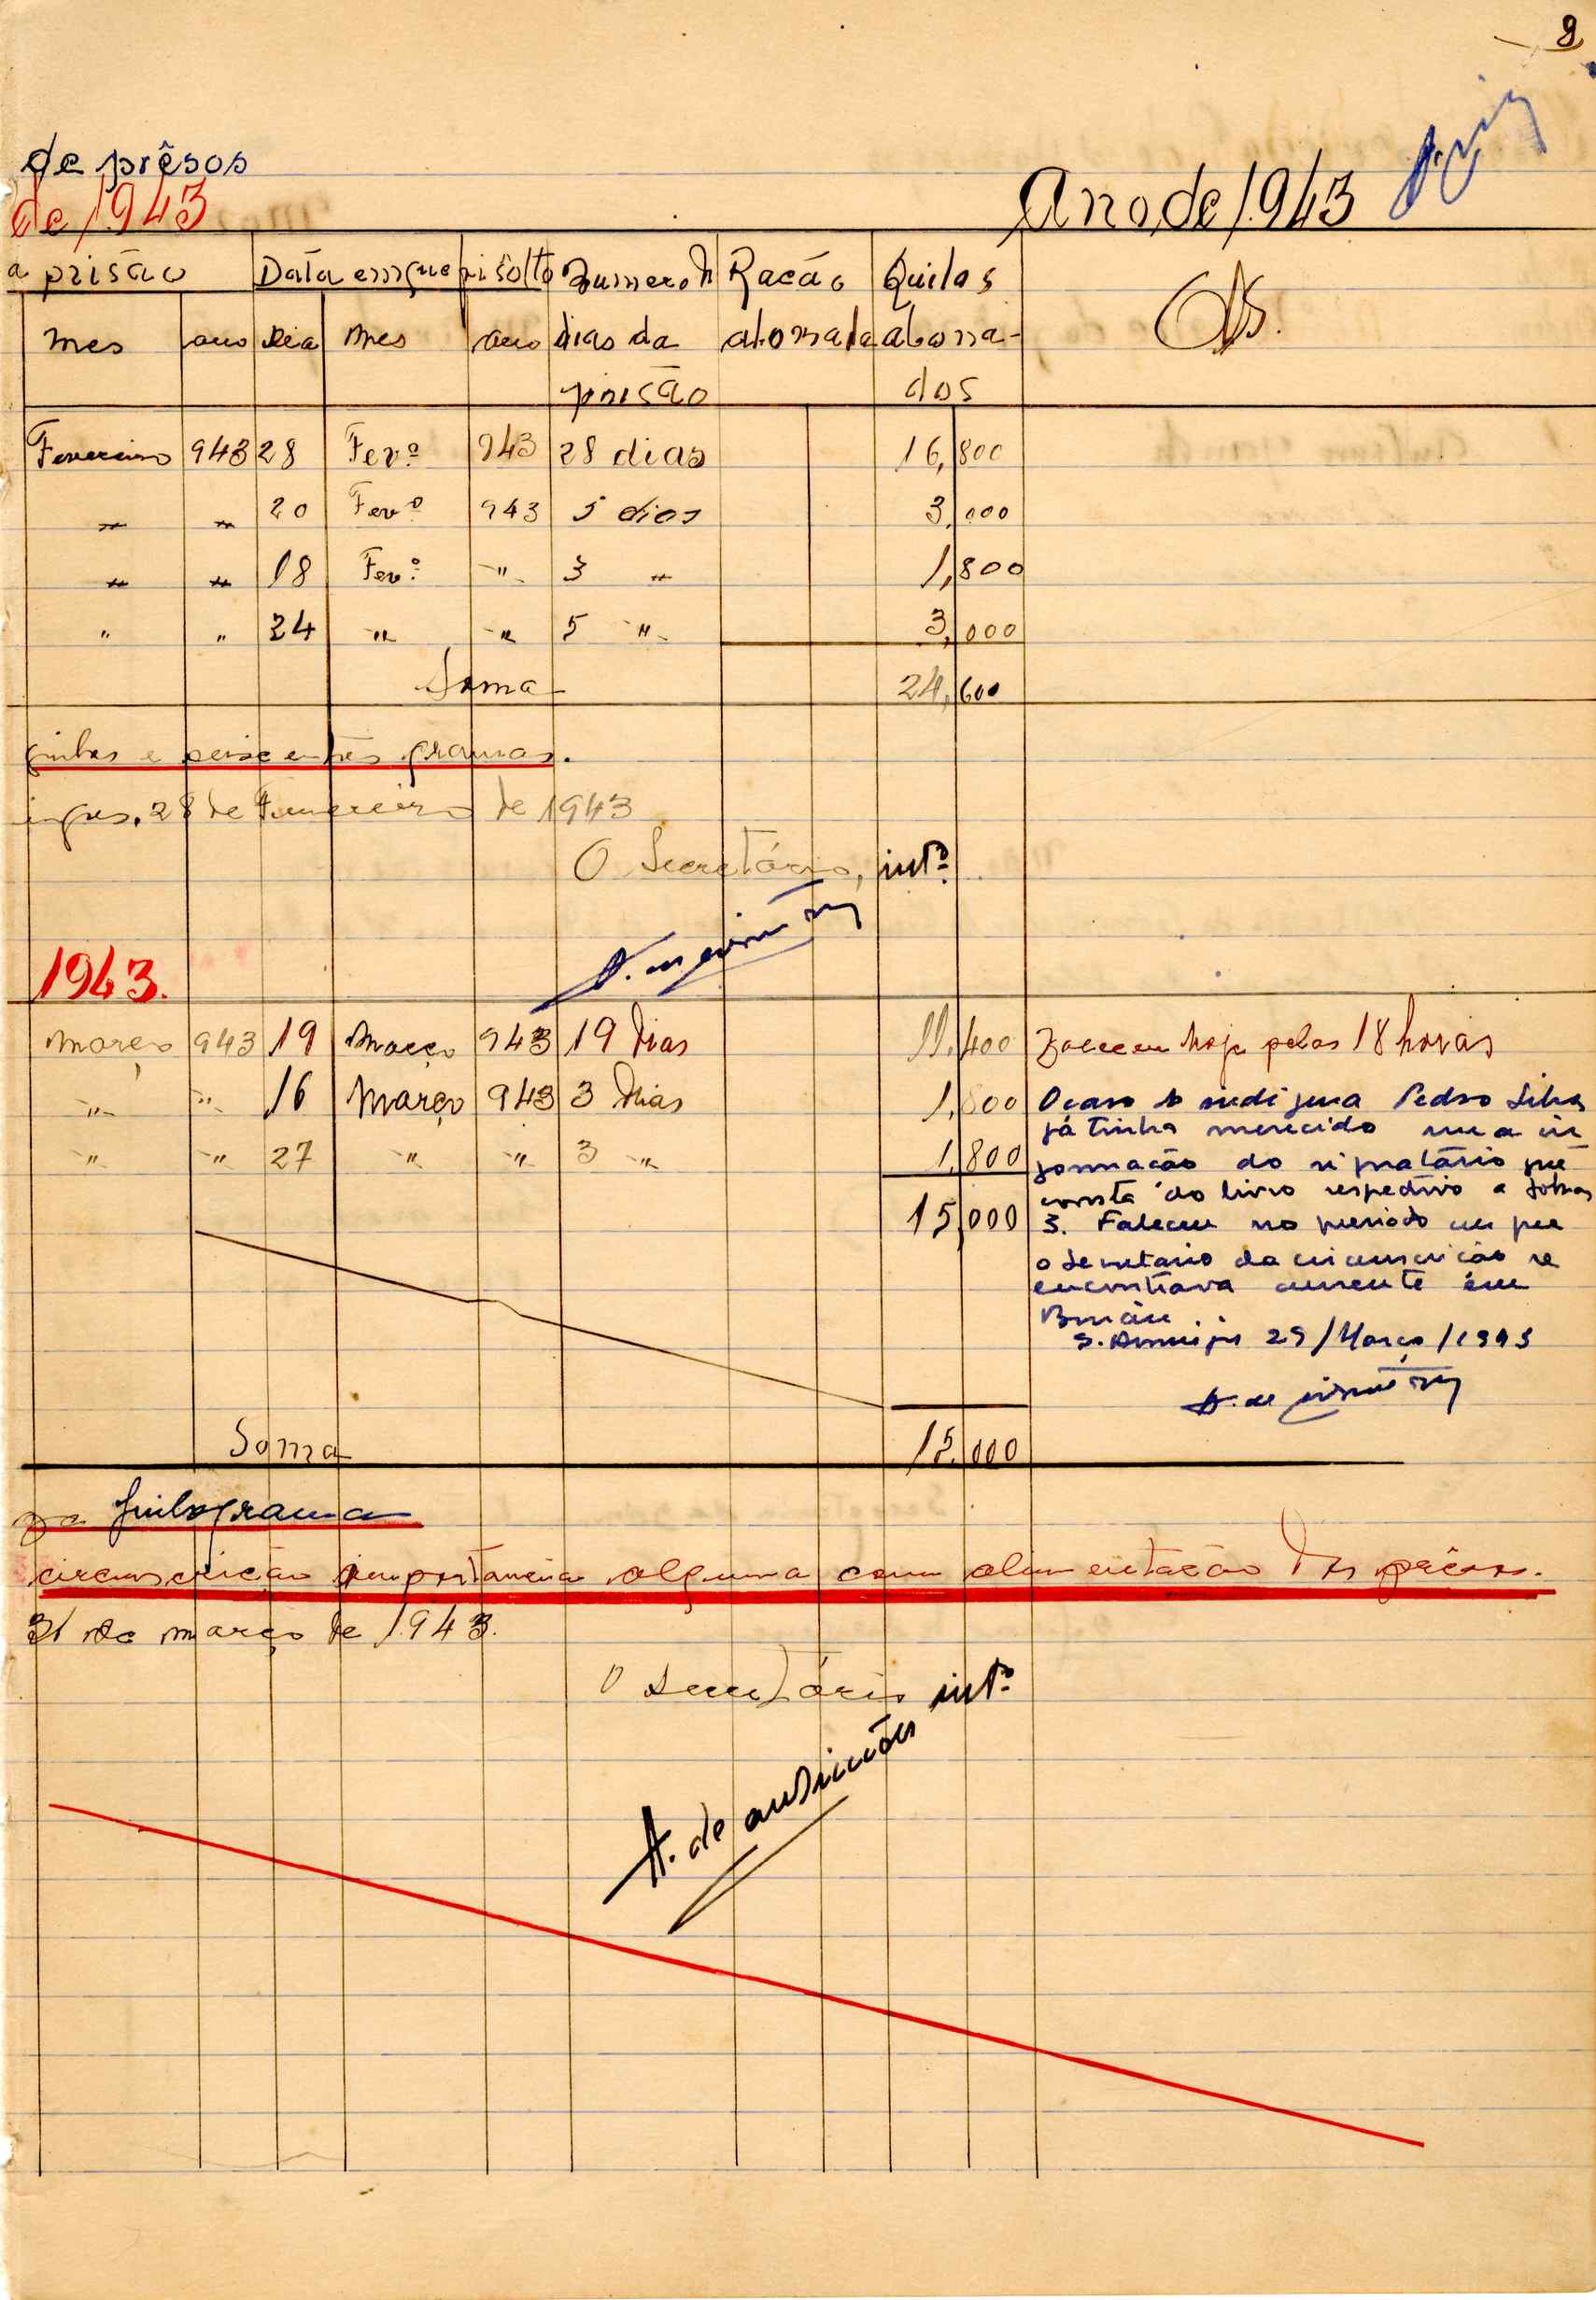 8
de prêsos
de 1.943
Ano de 1.943
a prisão Data em que foi sôlto Numero de Racão Quilos Obs.
mes ano Dia mes ano dias da abonada abona-
prisão dos
Fevereiro 943 28 Fev.º 943 28 dias 16,800
" " 20 Fev.º 943 5 dias 3,000
" " 18 Fev.º " 3 " 1,800
" " 24 " " 5 " 3,000
Soma 24,600
quilos e seiscentos gramas.
ingos, 28 de Fevereiro de 1943
O Secretário, int.º
1943.
Março 943 19 Março 943 19 Dias 11,400 Faleceu hoje pelas 18 horas
" " 16 Março 943 3 Dias 1,800
" " 27 " " 3 " 1,800
15,000
O caso do indigena Pedro Silva
já tinha merecido uma in
formação do signatário que
consta do livro respectivo a folhas
3. Faleceu no periodo em que
o Secretario da circunscrição se
encontrava ausente em
S. Domingos 29/Março/1943
Soma 15,000
quilograma
circunscrição importancia alguma com alimentação dos prêsos.
31 de março de 1.943.
O Secretário int.º
A. de